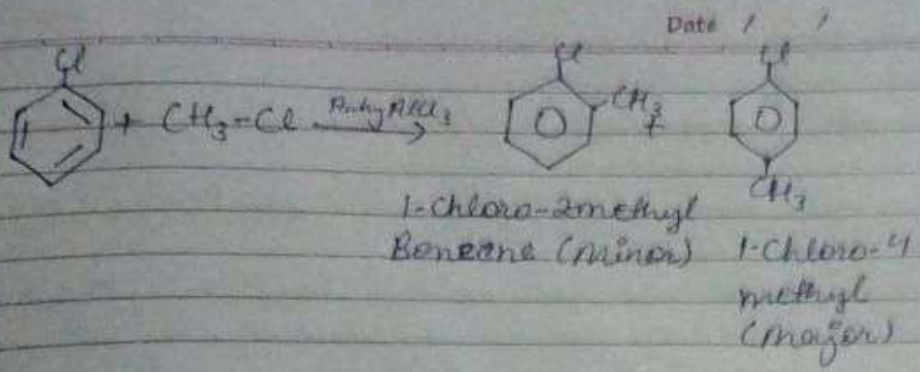 Date / /
Cl Cl Cl
+ CH3-Cl Anhy AlCl3 CH3 +
CH3
1-Chloro-2methyl
Benzene (minor) 1-Chloro-4
methyl
(major)